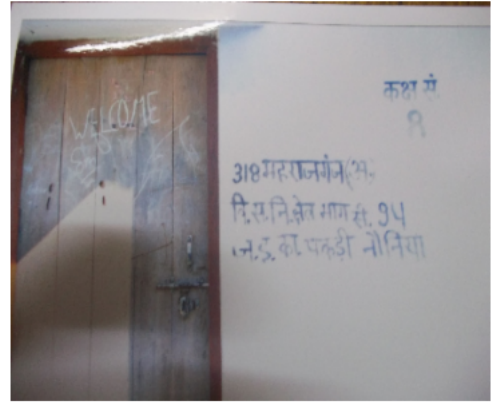 WELCOME
कक्ष सं.
8
318 महराजगंज (अ.)
वि.स.नि.क्षेत्र भाग सं. 94
का. पकड़ी नौनिया